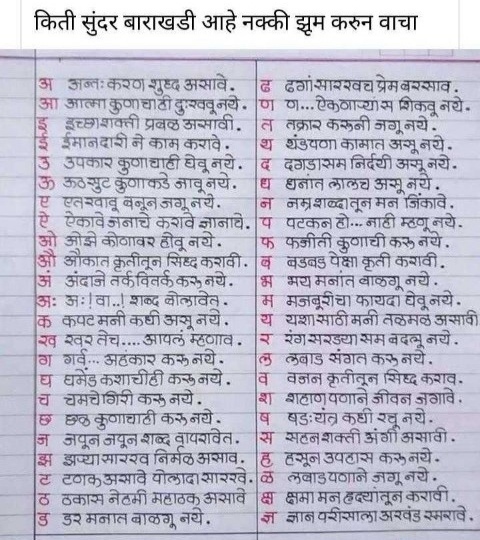 किती सुंदर बाराखडी आहे नक्की झूम करुन वाचा
अ अन्तःकरण शुध्द असावे.
आ आत्मा कुणाचाही दुःखवू नये.
इ इच्छाशक्ती प्रबळ असावी.
ई ईमानदारी ने काम करावे.
उ उपकार कुणाचाही घेवू नये.
ऊ ऊठसूट कुणाकडे जावू नये.
ए एतखावू बनून जगू नये.
ऐ ऐकावे जनाचे करावे ज्ञानाचे.
ओ ओझे कोणावर होवू नये.
औ औकात कृतीतून सिध्द करावी.
अं अंदाजे तर्कवितर्क करू नये.
अः अः! वा..! शब्द बोलावेत.
क कपट मनी कधी असू नये.
ख खरं तेच.... आपलं म्हणाव.
ग गर्व... अहंकार करू नये.
घ घमेंड कशाचीही करू नये.
च चमचेगिरी करू नये.
छ छळ कुणाचाही करू नये.
ज जपून जपून शब्द वापरावेत.
झ झऱ्यासारख निर्मळ असाव.
ट टणक असावे पोलादा सारखे.
ठ ठकास नेहमी महाठक असावे
ड डर मनात बाळगू नये.
ढ ढगांसारखच प्रेम बरसाव.
ण ण...ऐकणाऱ्यांस शिकवू नये.
त तक्रार करूनी जगू नये.
थ थंडपणा कामात असू नये.
द दगडासम निर्दयी असू नये.
ध धनांत लालच असू नये.
न नम्र शब्दातून मन जिंकावे.
प पटकन हो... नाही म्हणू नये.
फ फजीती कुणाची करू नये.
ब बडबड पेक्षा कृती करावी.
भ भय मनांत बाळगू नये.
म मजबूरीचा फायदा घेवू नये.
य यशासाठी मनी तळमळ असावी
र रंग सरड्या सम बदलू नये.
ल लबाड संगत करू नये.
व वजन कृतीतून सिध्द कराव.
श शहाणपणाने जीवन जगावे.
ष षडःयंत्र कधी रचू नये.
स सहनशक्ती अंगी असावी.
ह हसून उपहास करू नये.
ळ लबाडपणाने जगू नये.
क्ष क्षमा मन हृदयांतून करावी.
ज्ञ ज्ञान परीसाला अखंड स्मरावे.